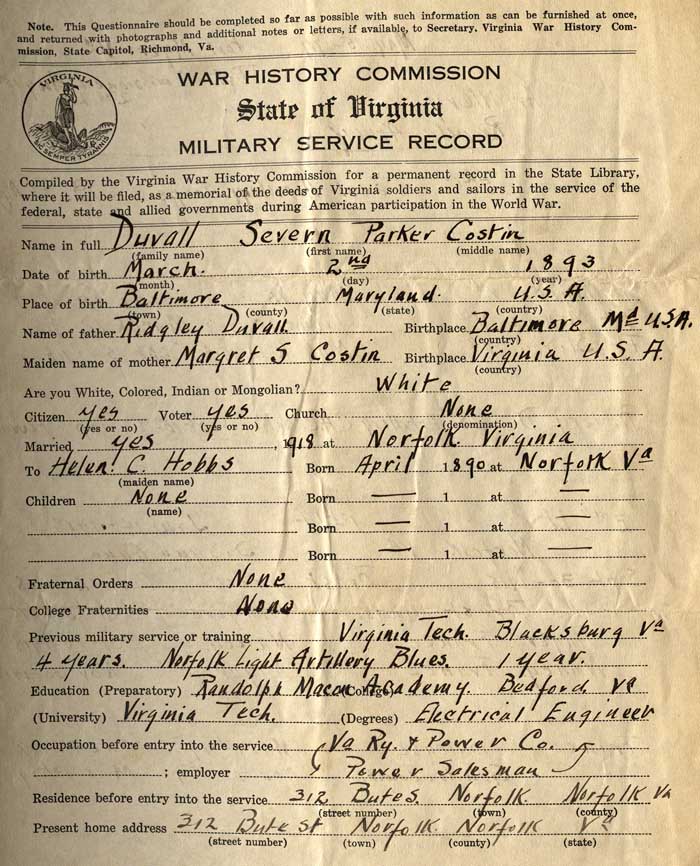 Note. This Questionnaire should be completed so far as possible with such information as can be furnished at once,
and returned with photographs and additional notes or letters, if available, to Secretary, Virginia War History Com-
mission, State Capitol, Richmond, Va.
VIRGINIA
SIC SEMPER TYRANNIS
WAR HISTORY COMMISSION
State of Virginia
MILITARY SERVICE RECORD
Compiled by the Virginia War History Commission for a permanent record in the State Library,
where it will be filed, as a memorial of the deeds of Virginia soldiers and sailors in the service of the
federal, state and allied governments during American participation in the World War.
Name in full Duvall Severn Parker Costin
(family name) (first name) (middle name)
Date of birth March. 2nd 1893
(month) (day) (year)
Place of birth Baltimore Maryland. U.S.A.
(town) (county) (state) (country)
Name of father Ridgley Duvall Birthplace Baltimore Md U.S.A.
(country)
Maiden name of mother Margret S Costin Birthplace Virginia U.S.A.
(country)
Are you White, Colored, Indian or Mongolian? White
Citizen yes Voter yes Church None
(yes or no) (yes or no) (denomination)
Married yes, 1918 at Norfolk Virginia
To Helen C. Hobbs Born April 1890 at Norfolk Va
(maiden name)
Children None Born — 1 at —
(name)
Born — 1 at —
Born — 1 at —
Fraternal Orders None
College Fraternities None
Previous military service or training Virginia Tech. Blacksburg Va
4 years. Norfolk Light Artillery Blues. 1 year.
Education (Preparatory) Randolph Macon Academy. Bedford Va
(College)
(University) Virginia Tech. (Degrees) Electrical Engineer
Occupation before entry into the service Va Ry. & Power Co.
; employer Power Salesman
Residence before entry into the service 312 Bute S. Norfolk Norfolk Va
(street number) (town) (county)
Present home address 312 Bute St Norfolk Norfolk Va
(street number) (town) (county) (state)